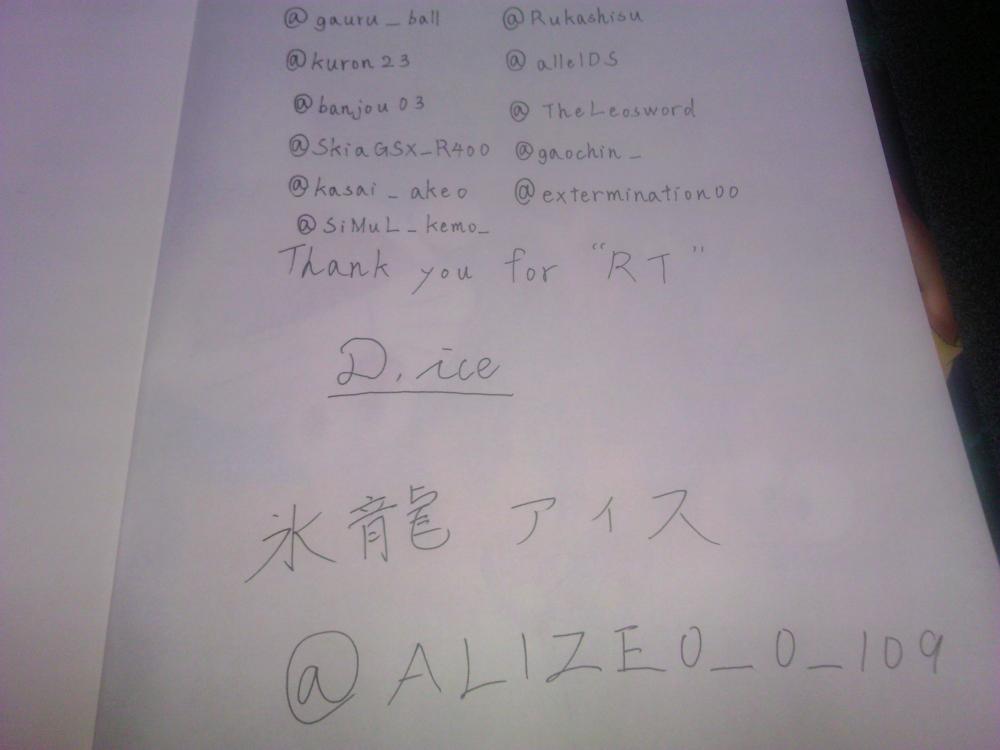 @gauru_ball @Rukashisu
@kuron23 @alleIDS
@banjou03 @TheLeosword
@SkiaGSX_R400 @gaochin_
@kasai_akeo @extermination00
@SiMuL_kemo_
Thank you for "RT"
D.ice
氷龍 アイス
@ALIZE0_0_109